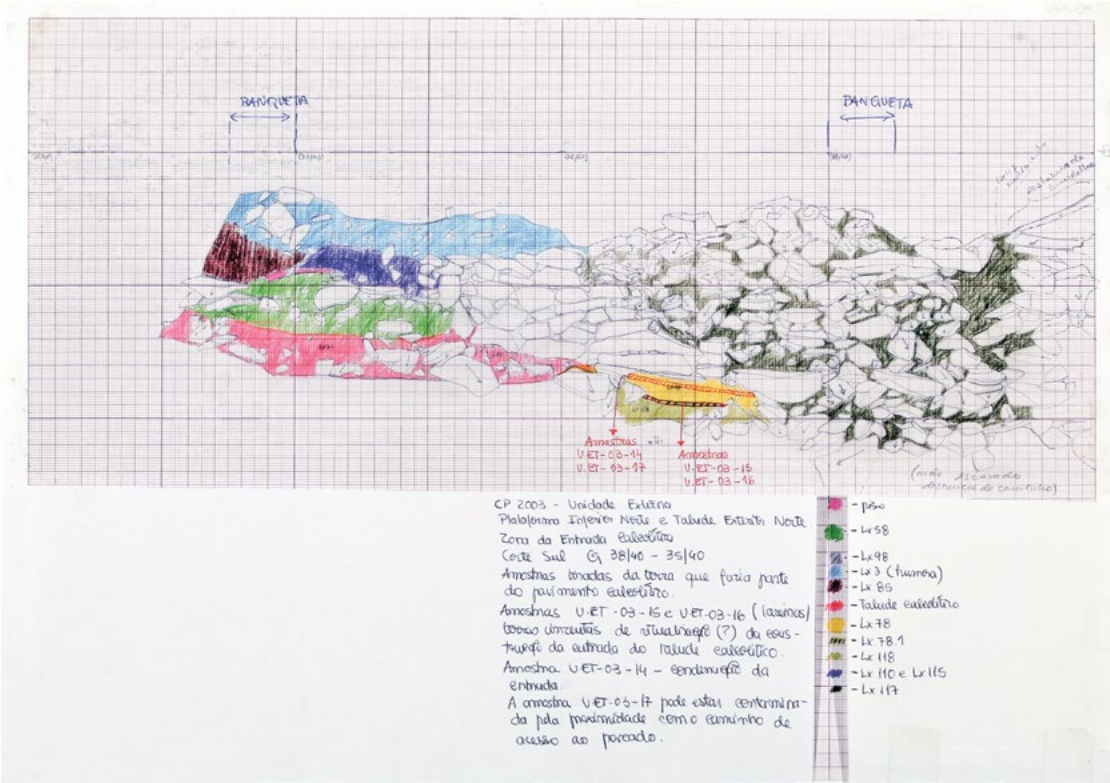 BANQUETA
BANQUETA
Amostras
U.ET-03-14
U.ET-03-17
Amostras
U.ET-03-15
U.ET-03-16
(não escavado
CP 2003 - Unidade Externa
Plataforma Inferior Norte e Talude Exterior Norte
Zona da Entrada calcolítica
Corte Sul Q 38/40 - 35/40
Amostras tiradas da terra que fazia parte
do pavimento calcolítico.
Amostras U.ET-03-15 e U.ET-03-16
terras cinzentas de ritualização (?) da cons-
trução da entrada do talude calcolítico.
Amostra U.ET-03-14 - condenação da
entrada.
A amostra U.ET-03-17 pode estar contamina-
da pela proximidade com o caminho de
acesso ao povoado.
- piso
- Lx 58
- Lx 98
- Lx 3 (humosa)
- Lx 85
- Talude calcolítico
- Lx 78
- Lx 78.1
- Lx 118
- Lx 110 e Lx 115
- Lx 117